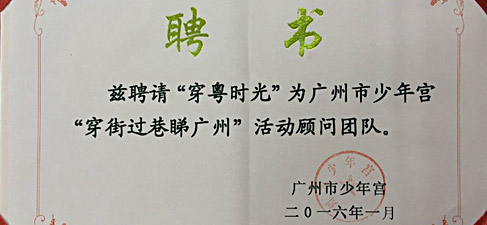 聘书
兹聘请“穿粤时光”为广州市少年宫
“穿街过巷睇广州”活动顾问团队。
广州市少年宫
二0一六年一月